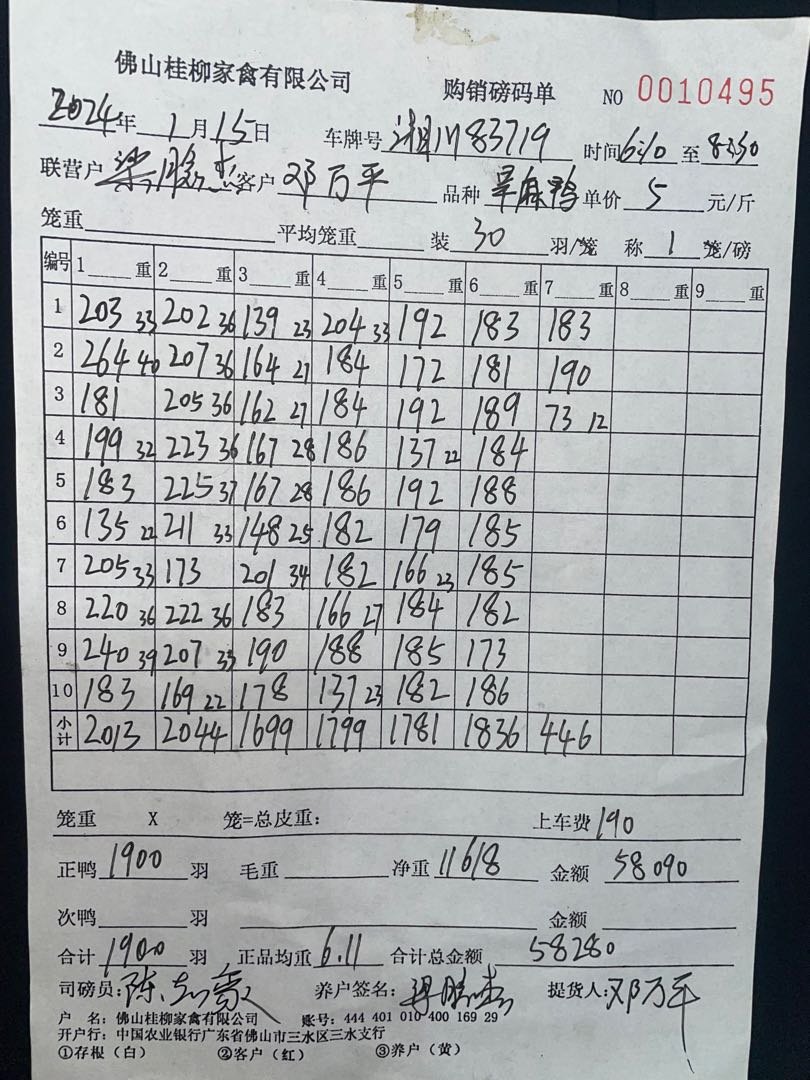 佛山桂柳家禽有限公司 购销磅码单 NO 0010495
2024年 1月15日 车牌号 湘J183719 时间6:10 至 8:30
联营户 梁腾杰 客户 邓万平 品种 单价 5 元/斤
笼重 平均笼重 装 30 羽/笼 称 1 笼/磅
编号 1 重 2 重 3 重 4 重 5 重 6 重 7 重 8 重 9 重
1 203 33 202 36 139 23 204 33 192 183 183
2 264 40 207 36 164 27 184 172 181 190
3 181 205 36 162 27 184 192 189 73 12
4 199 32 223 36 167 28 186 137 22 184
5 183 225 37 167 28 186 192 188
6 135 22 211 33 148 25 182 179 185
7 205 33 173 201 34 182 166 23 185
8 220 36 222 36 183 166 27 184 182
9 240 39 207 33 190 188 185 173
10 183 169 22 178 137 23 182 186
小计 2013 2044 1699 1799 1781 1836 446
笼重 X 笼=总皮重: 上车费 190
正鸭 1900 羽 毛重 净重 11618 金额 58090
次鸭 羽 金额
合计 1900 羽 正品均重 6.11 合计总金额 58280
司磅员: 陈志豪 养户签名: 梁腾杰 提货人: 邓万平
户 名: 佛山桂柳家禽有限公司 账号: 444 401 010 400 169 29
开户行: 中国农业银行广东省佛山市三水区三水支行
①存根(白) ②客户(红) ③养户(黄)